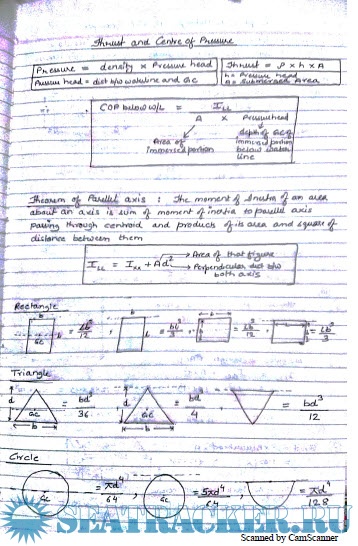 Thrust and Centre of Pressure
Pressure = density x Pressure head
Pressure head = dist b/w waterline and GC
Thrust = ρ x h x A
h = Pressure head
A = Submersed Area
COP below W/L = I LL
A x Pressure head
Area of immersed portion
depth of GC of immersed portion below water line
Theorem of Parallel axis : The moment of Inertia of an area
about an axis is sum of moment of inertia to parallel axis
passing through centroid and products of its area and square of
distance between them
I LL = I xx + Ad² → Area of that figure
→ Perpendicular dist b/w both axis
Rectangle
GC
b
Triangle
d GC b = bd³/36 , d GC b = bd³/4 , = bd³/12
Circle
GC = πd⁴/64 , GC = 5πd⁴/64 , = πd⁴/128
SEATRACKER.RU
Scanned by CamScanner